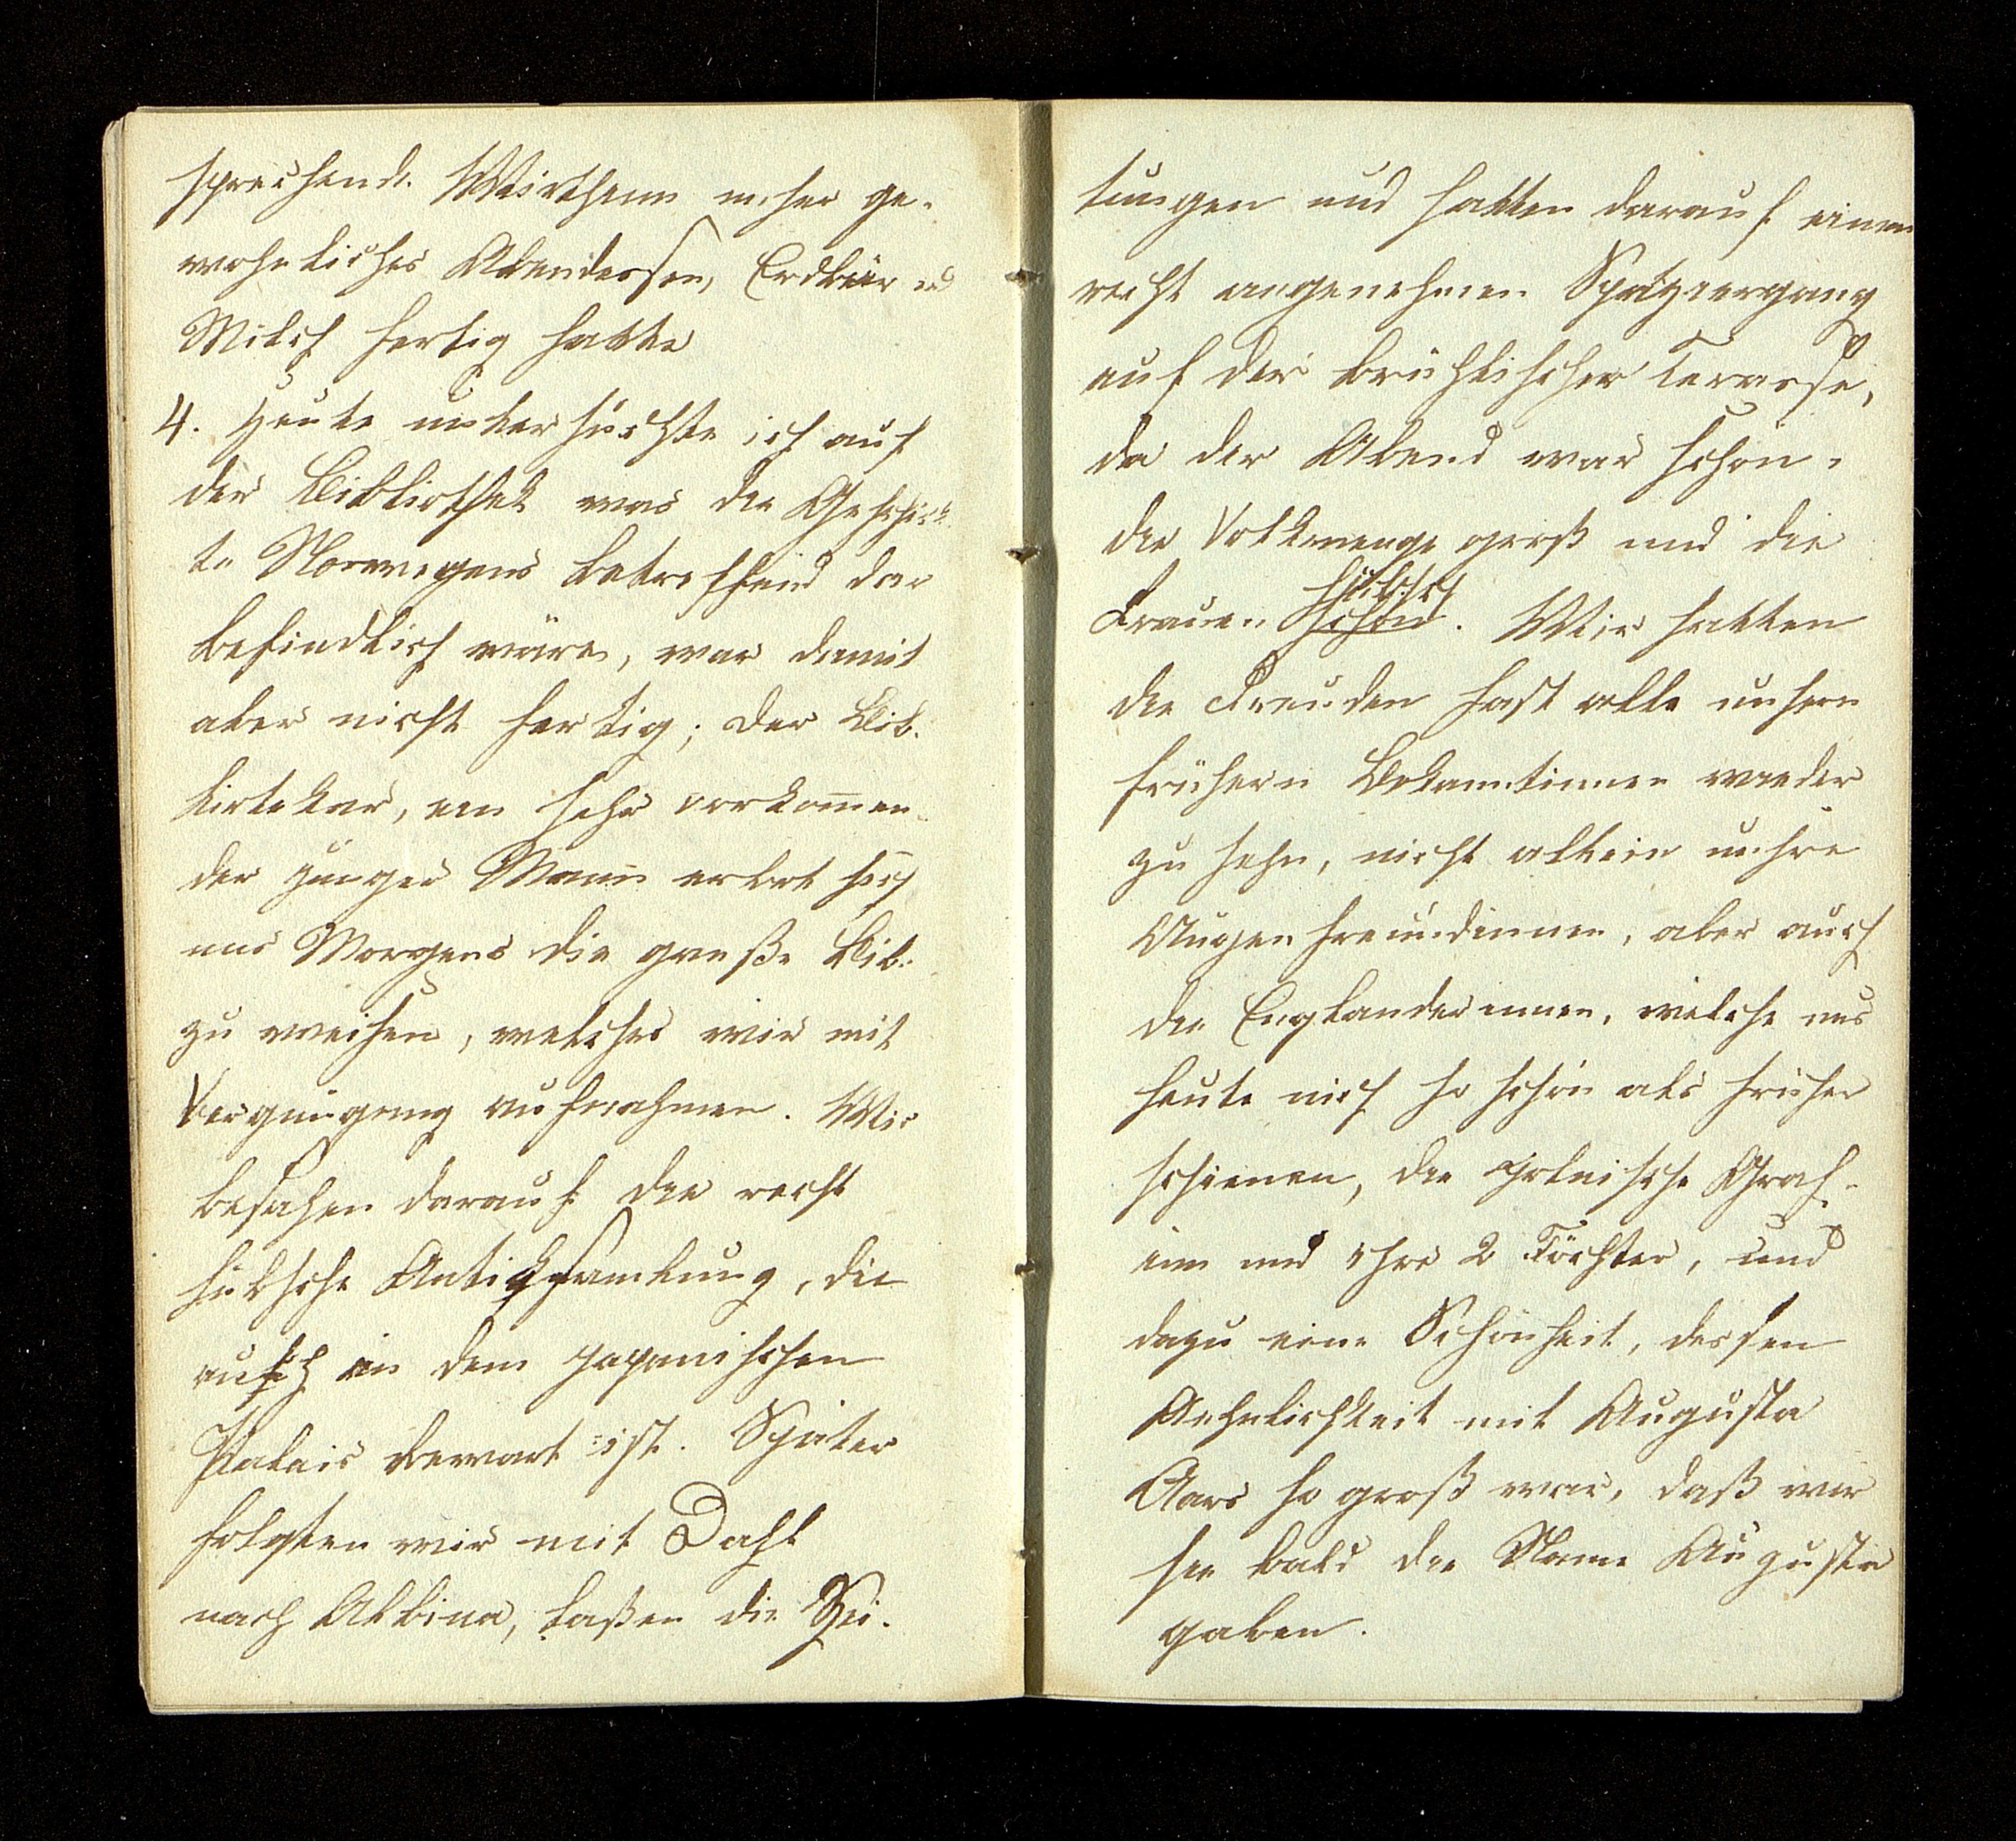 sprechende Wirthinn unser ge-
wohnliches Abendessen, Erdbär und
Milch fertig hatte
4. Heute untersuchte ich auf
der Bibliothek was die Geschich-
te Norwegens betreffend dar
befindlich wäre, war damit
aber nicht fertig; der Bib-
liotekar, ein sehr vorkom̄en-
der junger Mann erbot sich
uns Morgens die große Bib.
zu weisen, welches wir mit
Vergnügung aufnahmen. Wir
besahen darauf die recht
hübsche Antiksamlung, die
auch in dem japanischen
Palais bewart ist. Später
folgten wir mit Dahl
nach Albina, laßen die Zei-
tungen und hatten darauf einen
recht angenehmen Spatziergang
auf der brühlischer Terasse,
da der Abend war schön,
die Volkmenge groß und die
Frauen schön hübsch. Wir hatten
die Freuden fast alle unsern
frühern Bekanntinnen wieder
zu sehn, nicht allein unsre
Augenfreundinnen, aber auch
die Englanderinnen, welche uns
heute nich so schön als früher
schienen, die polnische Graf-
inn und ihre 2 Töchter, und
dazu eine Schönheit, dessen
Aehnlichkeit mit Augusta
Aars so groß war, daß wir
sie bald die Name Augusta
gaben.